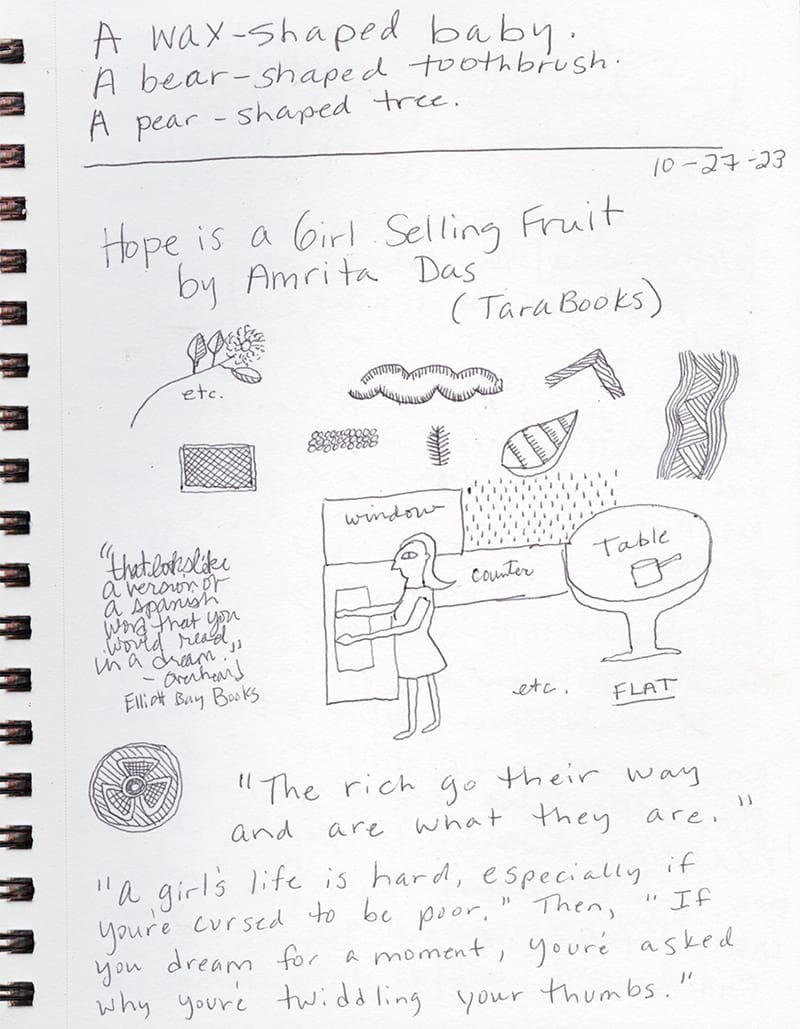 A wax-shaped baby.
A bear-shaped toothbrush.
A pear-shaped tree.
10-27-23
Hope is a Girl Selling Fruit
by Amrita Das
(TaraBooks)
etc.
window
counter
Table
"that looks like
a version of
a spanish
word that you
would read
in a dream."
- overheard
Elliott Bay Books
etc.
FLAT
"The rich go their way
and are what they are."
"A girl's life is hard, especially if
you're cursed to be poor." Then, "If
you dream for a moment, you're asked
why you're twiddling your thumbs."